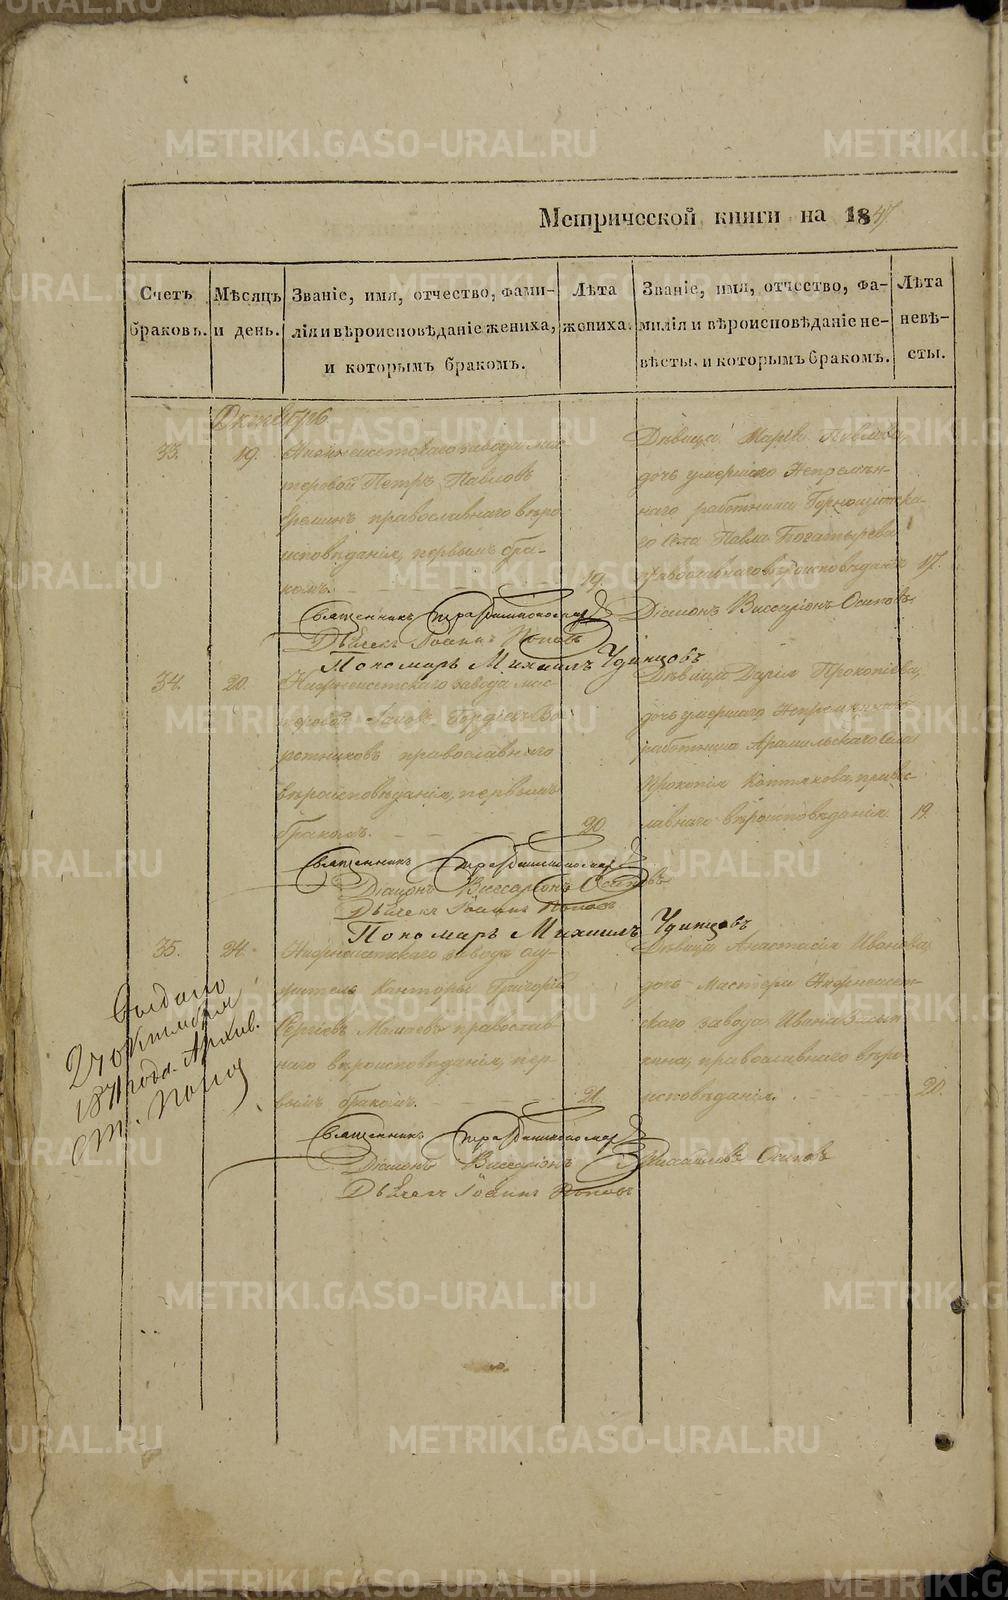 Метрической книги на 1847
Счетъ браковъ.
Мѣсяцъ и день.
Званіе, имя, отчество, фами-
лія и вѣроисповѣданіе жениха,
и которымъ бракомъ.
Лѣта
жениха.
Званіе, имя, отчество, фа-
милія и вѣроисповѣданіе не-
вѣсты, и которымъ бракомъ.
Лѣта
невѣ-
сты.
Октябрь
33.
19.
Нижнеисетскаго завода мас-
теровой Петръ Павловъ
Ереминъ православнаго вѣро
исповѣданія, первымъ бра-
комъ.
19.
Дѣвица Марія Павлова,
дочь умершаго Непремѣн-
наго работника Горнощитска-
го Села Павла Богатырева
православнаго вѣроисповѣданія
17.
Священникъ
Діаконъ Виссаріонъ Осиповъ
Дьячекъ Іоаннъ Поповъ
Пономарь Михаилъ Удинцовъ
34.
20.
Нижнеисетскаго завода мас-
теровой Гордѣевъ
православнаго
вѣроисповѣданія, первымъ
бракомъ.
20
Дѣвица Дарія Прокопіева,
дочь умершаго Непремѣннаго
работника Арамильскаго Села
Прокопія Коптякова, правос-
лавнаго вѣроисповѣданія.
19.
Священникъ
Діаконъ Виссаріонъ Осиповъ
Дьячекъ Іоаннъ Поповъ
Пономарь Михаилъ Удинцовъ
35.
24.
Нижнеисетскаго завода слу-
житель Канторы Григорій
Сергіевъ православ-
наго вѣроисповѣданія, пер-
вымъ бракомъ.
21.
Дѣвица Анастасія Иванова,
дочь Мастера Нижнеисет-
скаго завода Ивана
православнаго вѣро
исповѣданія.
20.
Выдано
24 октября
1871 года. Архив.
Священникъ
Діаконъ Виссаріонъ Осиповъ
Дьячекъ Іоаннъ Поповъ
METRIKI.GASO-URAL.RU